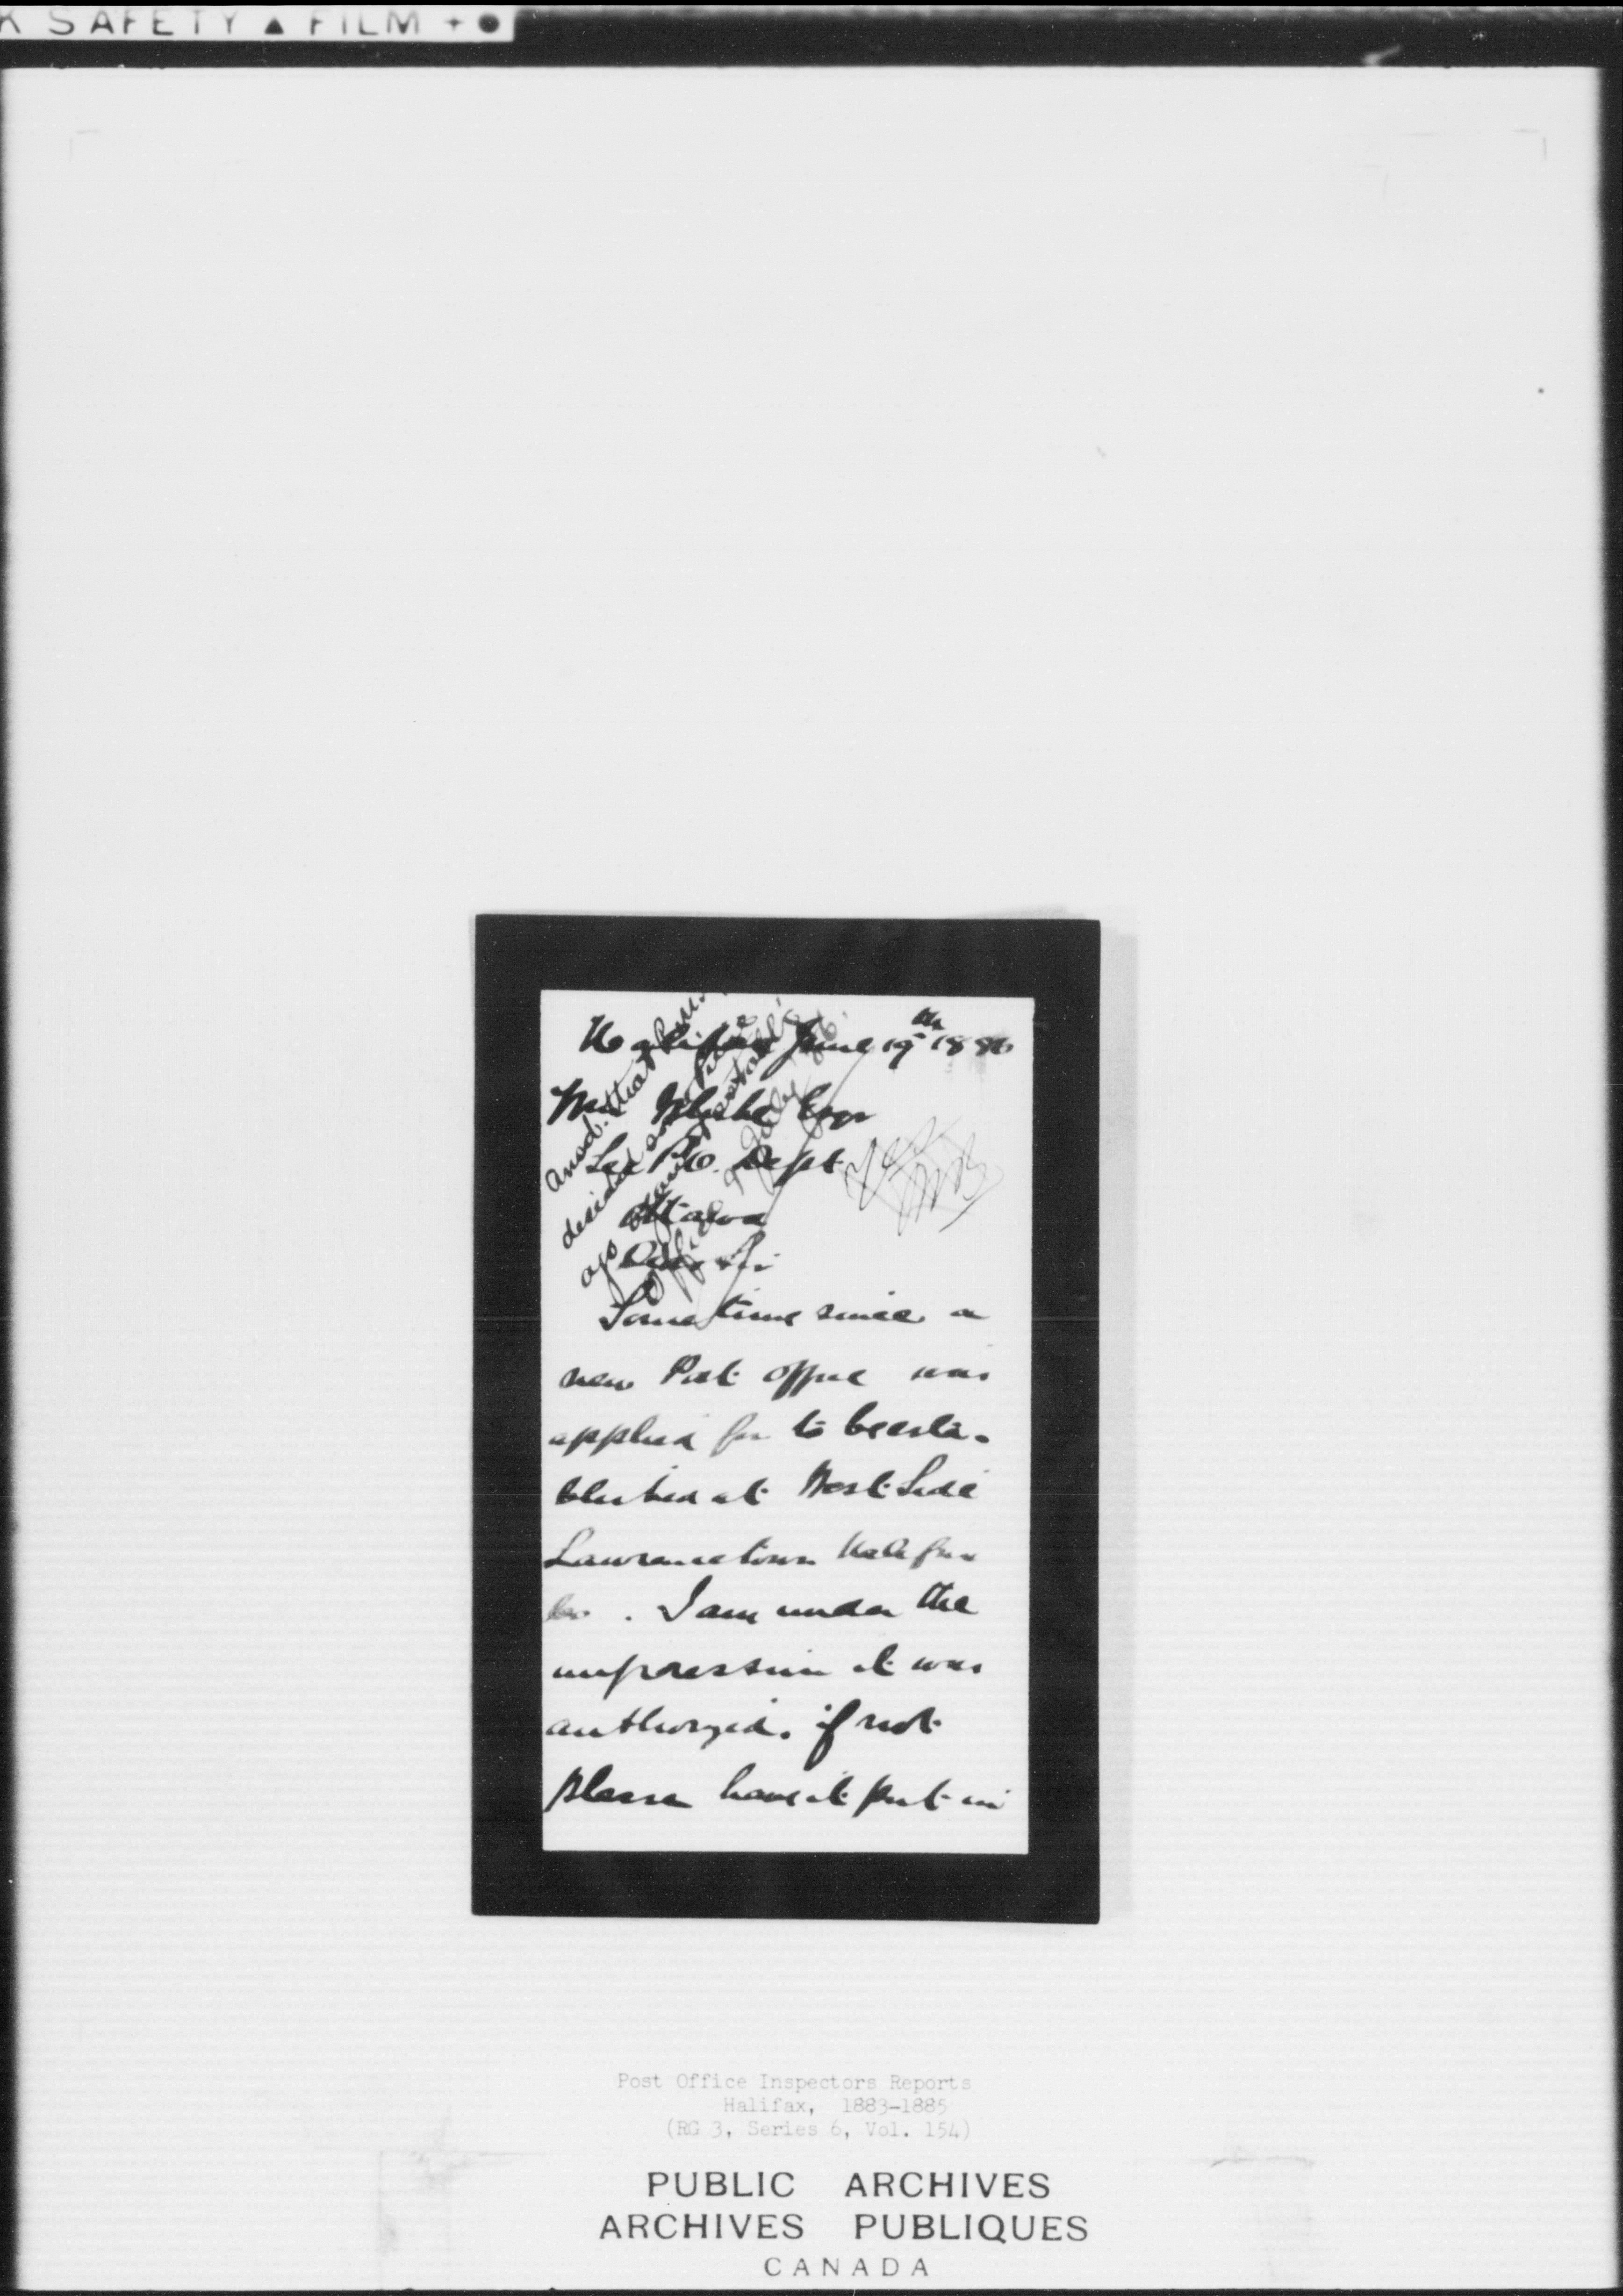 K SAFETY ▲ FILM + ●
Halifax June 19th 1886
Wm White Esqr
Sec P.O. Dept
Ottawa
Dear Sir
Sometime since a
new Post office was
applied for to be esta-
blished at West Side
Lawrencetown Halifax
Co. I am under the
impression it was
authorized. if not
please have it put in
Ansd. that
decided
ago
office
Post Office Inspectors Reports
Halifax, 1883-1885
(RG 3, Series 6, Vol. 154)
PUBLIC ARCHIVES
ARCHIVES PUBLIQUES
CANADA